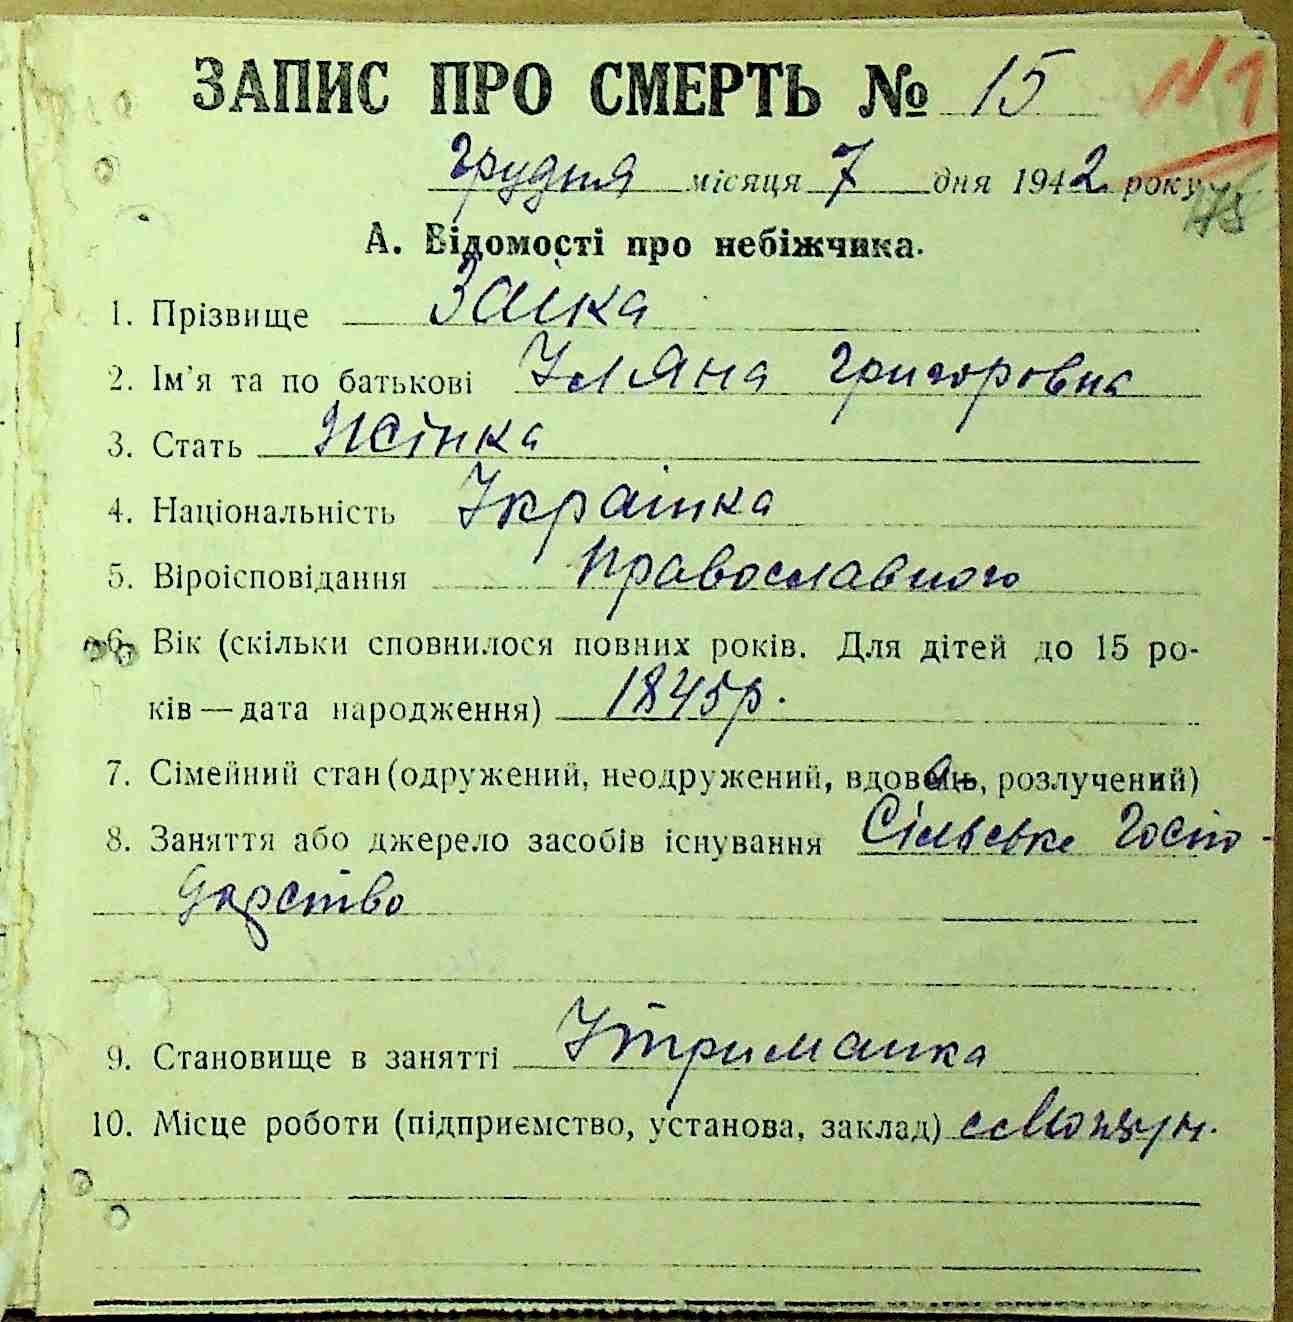 ЗАПИС ПРО СМЕРТЬ № 15 №1
грудня місяця 7 дня 1942 року
А. Відомості про небіжчика.
1. Прізвище Заіка
2. Ім'я та по батькові Уляна Григоровна
3. Стать Жінка
4. Національність Украінка
5. Віроісповідання Православного
6. Вік (скільки сповнилося повних років. Для дітей до 15 ро-
ків — дата народження) 1845р.
7. Сімейний стан (одружений, неодружений, вдова, розлучений)
8. Заняття або джерело засобів існування Сільське Госпо-
дарство
9. Становище в занятті Утриманка
10. Місце роботи (підприємство, установа, заклад)